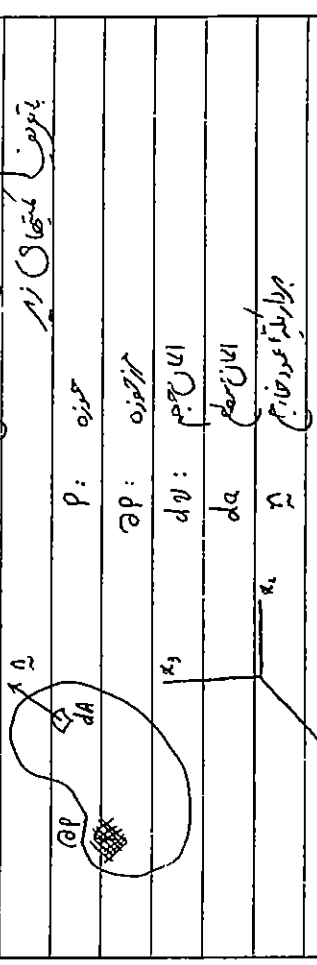 با تعریف کمیتهای زیر
P : حوزه
∂P : مرز حوزه
dv : المان حجم
da المان سطح
n بردار یکه عمود خارج
n
dA
∂P
x₃
x₂